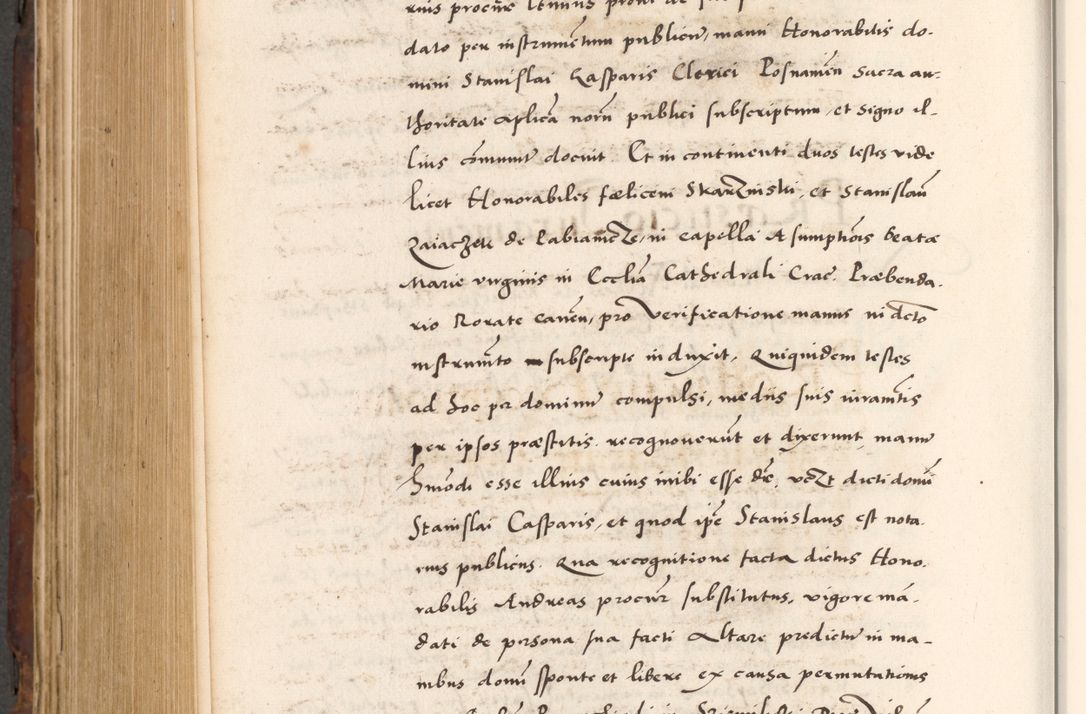 dato per instrumentum publicũ, manu Honorabilis do-
mini Stanislai Casparis Clerici Posnamẽn sacra au-
thoritate aplica norũ publici subscriptum, et signo il-
lius cõmunit docuit. Et in continenti duos testes vide
licet Honorabiles fœlicem Skarznistki, et Stanislaũ
Zaiaczek de Pabianicze, in capella Assumptiõis beatæ
Marie virginis in Ecclia Cathedrali Crac. Præbenda.
rio Rorate canẽn, pro verificatione manus in dcto
instrumẽto subscripte induxit. Quiquidem testes
ad hoc per dominũ compulsi, mediis suis iuramẽtis
per ipsos præstitis. recognoverũt et dixerunt, manũ
hmõdi esse illius cuius inibi esse dr̃, vczt dicti domĩ
Stanislai Casparis, et quod ipẽ Stanislaus est nota.
rius publicus. Qua recognitione facta dictus Hono.
rabilis Andreas procur̃ substitutus, vigore mã.
dati de persona sua facti Altare predictũ in ma-
nibus domĩ sponte et libere ex causa permutationis